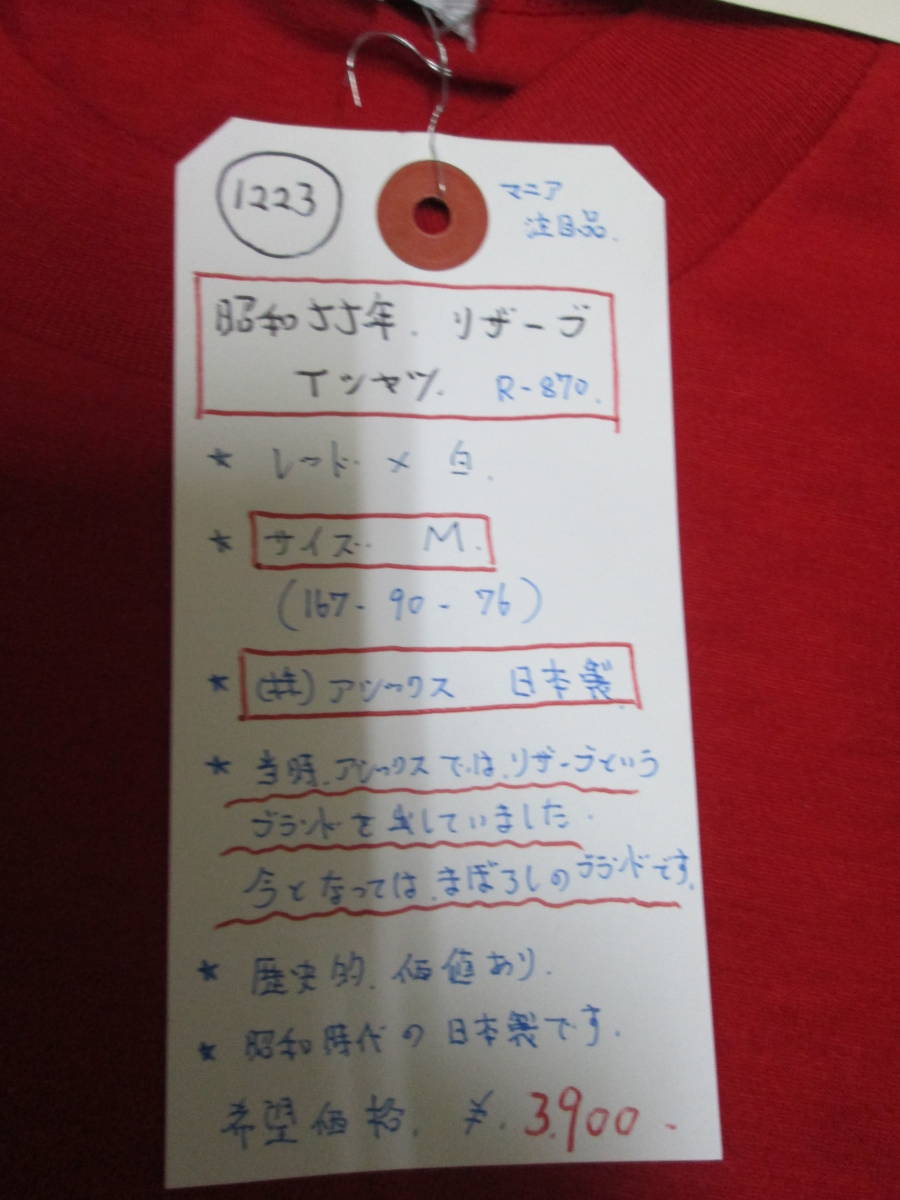 1223
マニア
注目品.
昭和55年. リザーブ
Tシャツ. R-870.
★ レッド × 白.
★ サイズ. M.
(167-90-76)
★ (株)アシックス 日本製.
★ 当時.アシックスでは.リザーブという
ブランドを出していました.
今となっては.まぼろしのブランドです.
★ 歴史的.価値あり.
★ 昭和時代の日本製です.
希望価格. ¥.3.900-